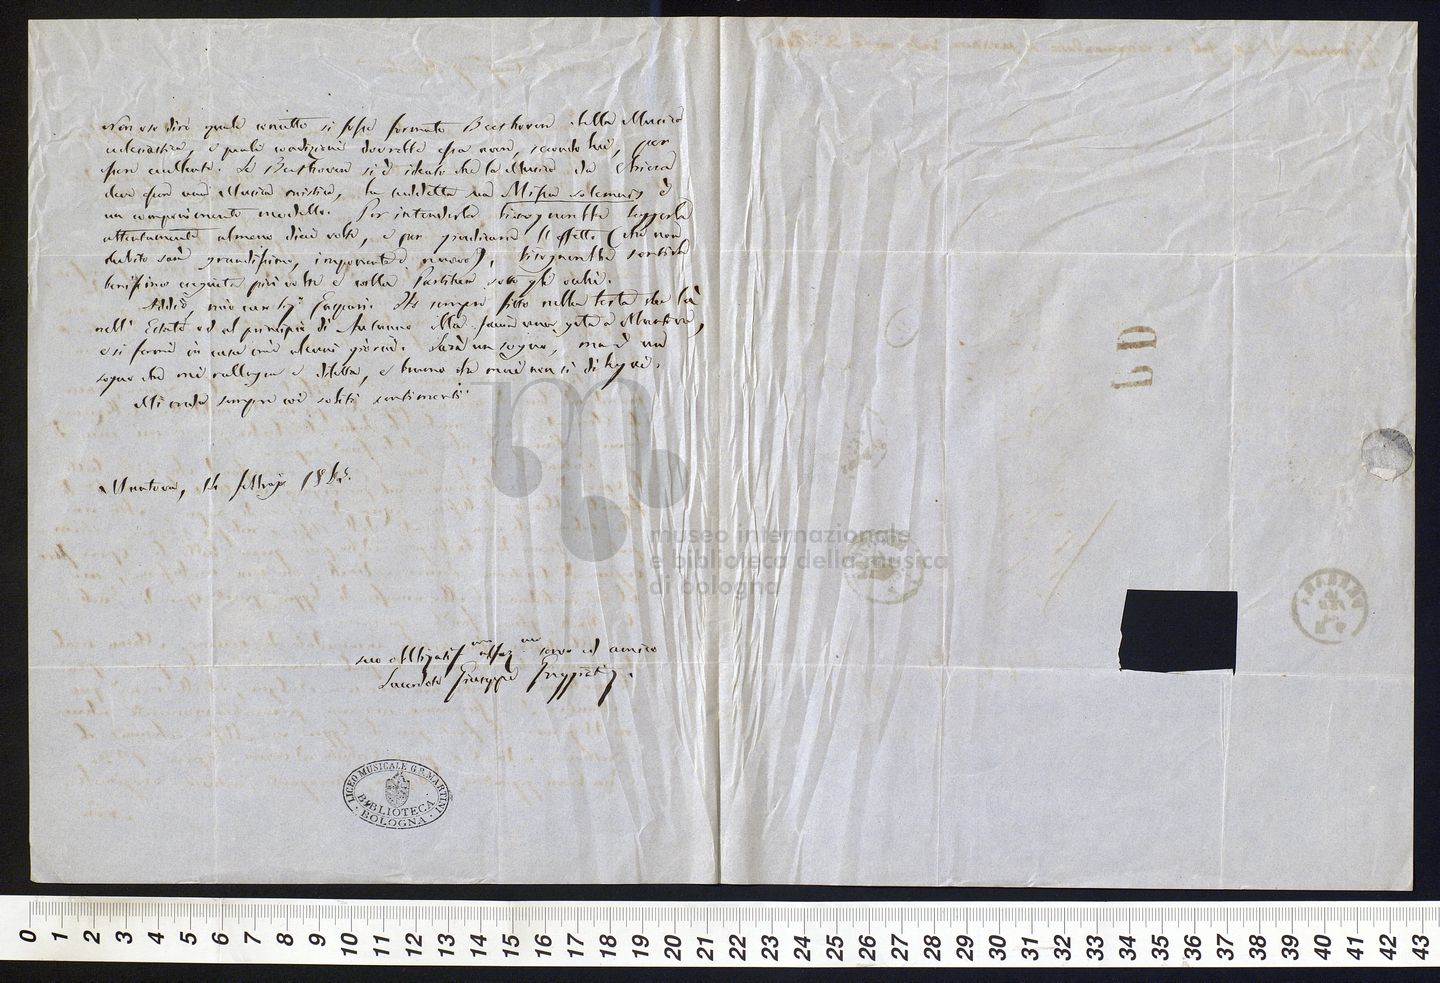 Non oso dire quale concetto si fosse formato Beethoven della Musica
ecclesiastica, e quale condizione dovrebbe essa avere, secondo lui, per
esser eccellente. Se Beethoven si è ideato che la Musica da Chiesa
dee esser una Musica mistica, la suddetta sua Missa solemnis è
un componimento modello. Per intenderla bisognerebbe leggerla
attentamente almeno dieci volte, e per giudicarne l'effetto (che non
dubito sarà grandissimo, imponente e nuovo), bisognerebbe sentirla
benissimo eseguita più volte e colla Partitura sotto gli occhi.
Addio, mio caro Sigr Gaspari. Ho sempre fitto nella testa che Ella
nell'Estate od al principio di Autunno Ella faccia una gita a Mantova,
e si fermi in casa mia alcuni giorni. Sarà un sogno, ma è un
sogno che mi rallegra e diletta, e bramo che mai non si dilegui.
Mi creda sempre coi soliti sentimenti
Mantova, 14 febbrajo
suo Obbligatissmo affezmo servo ed amico
Sacerdote Giuseppe
LICEO MUSICALE G.B. MARTINI
BIBLIOTECA
BOLOGNA
PD
museo internazionale
e biblioteca della musica
di bologna
0 1 2 3 4 5 6 7 8 9 10 11 12 13 14 15 16 17 18 19 20 21 22 23 24 25 26 27 28 29 30 31 32 33 34 35 36 37 38 39 40 41 42 43